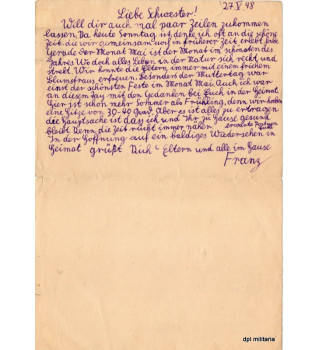 27.5.48
Liebe Schwester!
Will dir auch mal paar Zeilen zukommen
lassen. Da heute Sonntag ist, denke ich oft an die schöne
Zeit die wir gemeinsam in früherer Zeit erlebt
Gerade der Monat Mai ist der Monat im schönsten des
Jahres Wo doch alles Leben in der Natur sich reckt und
streckt Wir konnte die Eltern immer mit einem frischen
Blumstraus erfreuen. Besonders der Muttertag war
einst der schönste Feste im Monat Mai. Auch ich war
an diesem Tag mit den Gedanken bei Euch in der Heimat
Hier ist schon mehr Sommer als Frühling, denn wir haben
eine Hitze von 30-40 Grad. Aber es ist alles zu ertragen
die Hauptsache ist das ich und Ihr zu Hause gesund
bleibt Denn die Zeit rückt immer näher
In der Hoffnung auf ein baldiges Wiedersehen in
Heimat grüßt Dich Eltern und alle im Hause
Franz
dpl militaria